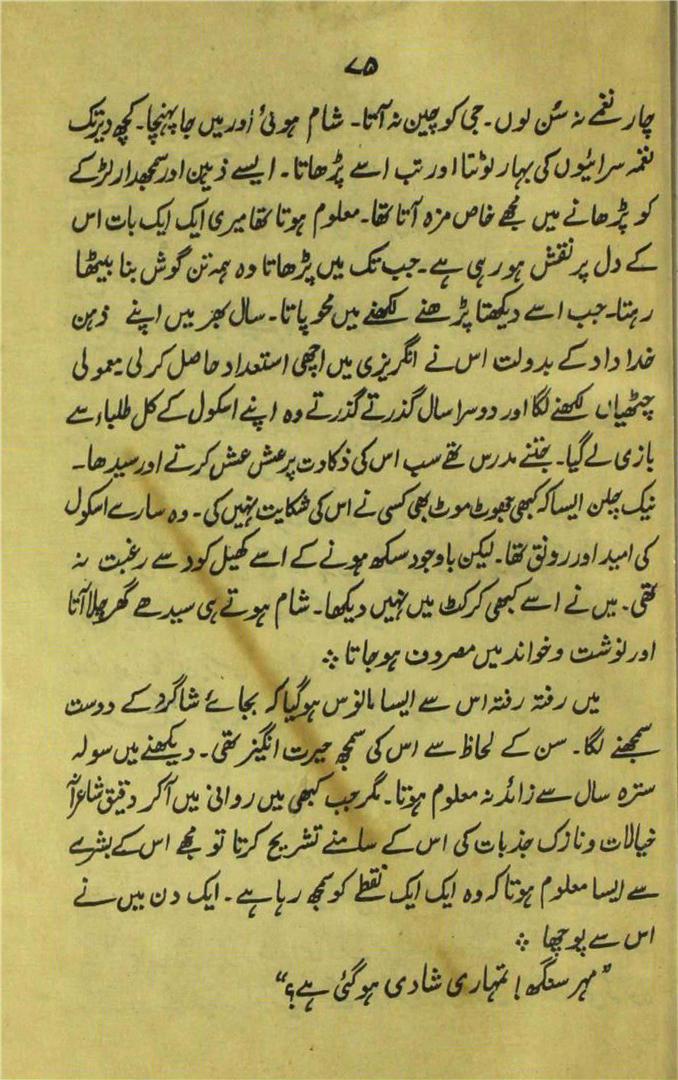 ۷۵
چار نغمے نہ سُن لوں۔ جی کو چین نہ آتا۔ شام ہوئی اور میں جا پہنچا۔ کچھ دیر تک
نغمہ سرائیوں کی بہار لوٹتا اور تب اسے پڑھاتا۔ ایسے ذہین اور سمجھدار لڑکے
کو پڑھانے میں مجھے خاص مزہ آتا تھا۔ معلوم ہوتا تھا میری ایک ایک بات اس
کے دل پر نقش ہو رہی ہے۔ جب تک میں پڑھاتا وہ ہمہ تن گوش بنا بیٹھا
رہتا۔ جب اسے دیکھتا پڑھنے لکھنے میں محو پاتا۔ سال بھر میں اپنے ذہن
خداداد کے بدولت اس نے انگریزی میں اچھی استعداد حاصل کر لی معمولی
چٹھیاں لکھنے لگا اور دوسرا سال گذرتے گذرتے وہ اپنے اسکول کے کل طلباء سے
بازی لے گیا۔ جتنے مدرس تھے سب اس کی ذکاوت پر عش عش کرتے اور سیدھا۔
نیک چلن ایسا کہ کبھی جھوٹ موٹ بھی کسی نے اس کی شکایت نہیں کی۔ وہ سارے اسکول
کی امید اور رونق تھا۔ لیکن باوجود سکھ ہونے کے اسے کھیل کود سے رغبت نہ
تھی۔ میں نے اسے کبھی کرکٹ میں نہیں دیکھا۔ شام ہوتے ہی سیدھے گھر چلا آتا
اور نوشت و خواند میں مصروف ہو جاتا ؞
میں رفتہ رفتہ اس سے ایسا مانوس ہو گیا کہ بجائے شاگرد کے دوست
سمجھنے لگا۔ سن کے لحاظ سے اس کی سمجھ حیرت انگیز تھی۔ دیکھنے میں سولہ
سترہ سال سے زائد نہ معلوم ہوتا۔ مگر جب کبھی میں روانی میں آکر دقیق شاعرانہ
خیالات و نازک جذبات کی اس کے سامنے تشریح کرتا تو مجھے اس کے بشرے
سے ایسا معلوم ہوتا کہ وہ ایک ایک نقطے کو سمجھ رہا ہے۔ ایک دن میں نے
اس سے پوچھا ؞
"مہر سنگھ! تمہاری شادی ہو گئی ہے؟"